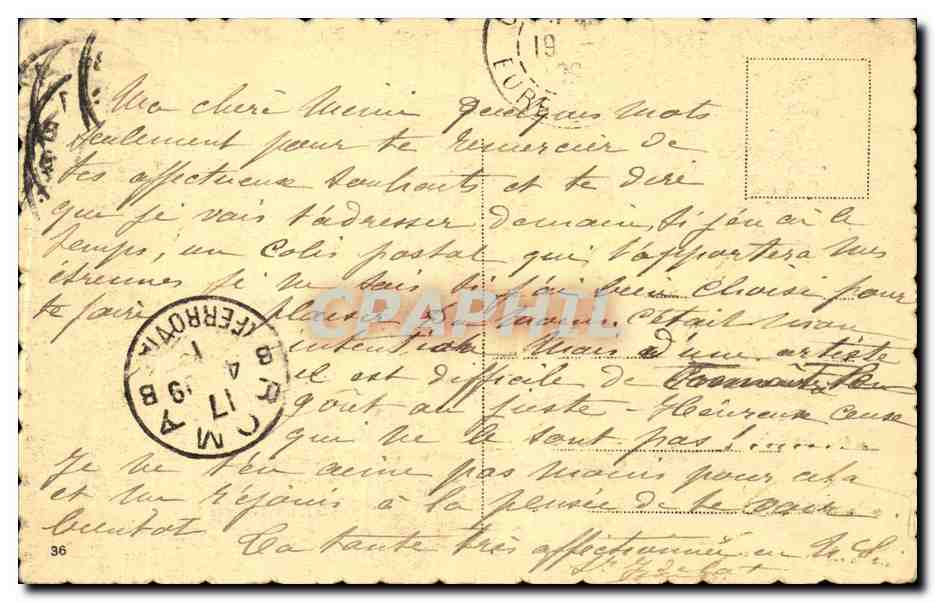 19
EURE
Ma chère Mimi quelques mots
seulement pour te remercier de
tes affectueux souhaits et te dire
que je vais t'adresser demain, si j'en ai le
temps, un colis postal qui t'apportera mes
étrennes je ne sais si j'ai bien choisi pour
te faire plaisir c'était mon
intention Mais d'une artiste
il est difficile de
goût au juste - Heureux ceux
qui ne le sont pas !
Je ne t'en aime pas moins pour cela
et me réjouis à la pensée de te voir
bientôt
Ta tante très affectionnée en
36
(FERROVIA
17 4 1
19
CPAPHIL